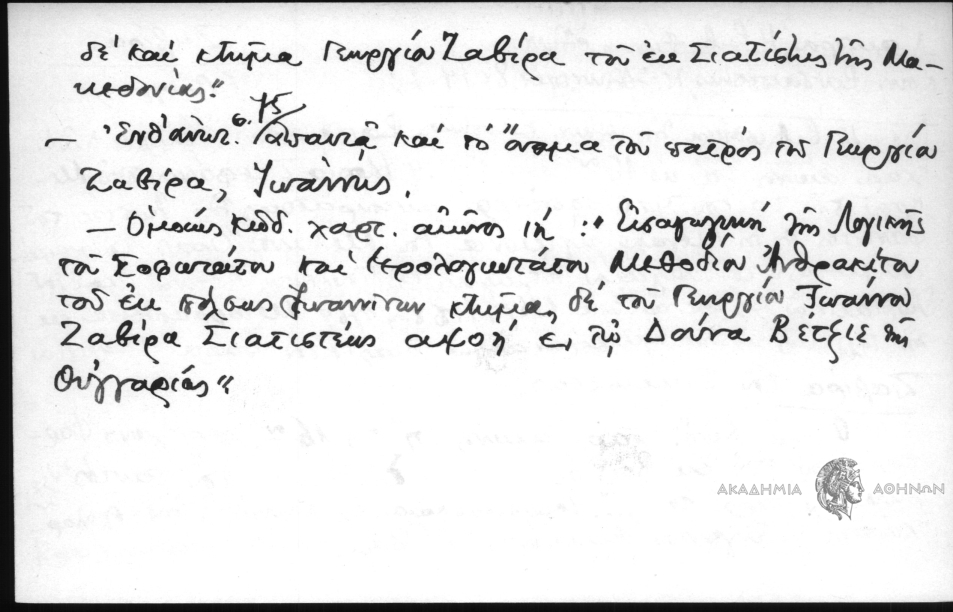 δὲ καὶ κτῆμα Γεωργίου Ζαβίρα τοῦ ἐκ Σιατίστης τῆς Μα-
κεδονίας"
— Ἐνθ' ἀνωτ. σ. 75 ἀπαντᾷ καὶ τὸ ὄνομα τοῦ πατρός τοῦ Γεωργίου
Ζαβίρα, Ἰωάννης.
— Ὁμοίως κωδ. χαρτ. αἰῶνος ιή : " Εἰσαγωγικὴ τῆς Λογικῆς
τοῦ Σοφωτάτου καὶ Ἱερολογιωτάτου Μεθοδίου Ἀνθρακίτου
τοῦ ἐκ πόλεως Ἰωαννίνων κτῆμα δὲ τοῦ Γεωργίου Ἰωάννου
Ζαβίρα Σιατιστέως ἐν τῷ Δούνα Βέτζιε τῆς
Οὑγγαρίας"
ΑΚΑΔΗΜΙΑ ΑΘΗΝΩΝ